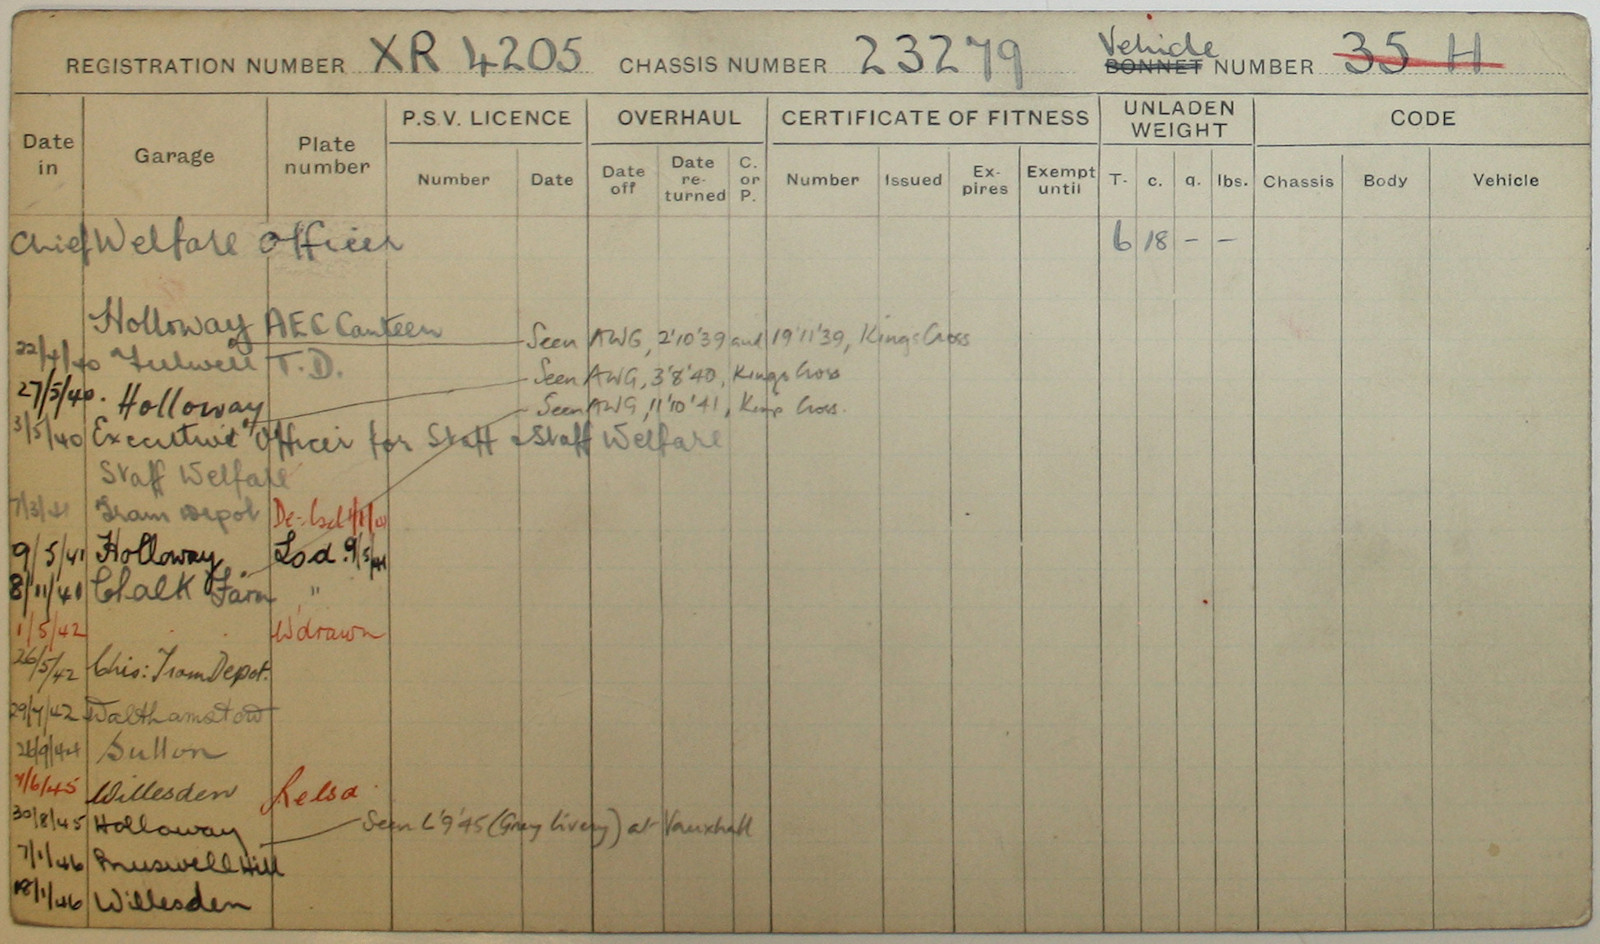 REGISTRATION NUMBER XR 4205 CHASSIS NUMBER 23279 Vehicle BONNET NUMBER 35 H
Date in Garage Plate number P.S.V. LICENCE Number Date OVERHAUL Date off Date re-turned C. or P. CERTIFICATE OF FITNESS Number Issued Ex-pires Exempt until UNLADEN WEIGHT T. c. q. lbs. CODE Chassis Body Vehicle
Chief Welfare Officer 6 18 - -
Holloway AEC Canteen
Seen AWG, 2'10'39 and 19'11'39, Kings Cross
22/4/40 Fulwell T.D.
Seen AWG, 3'8'40, Kings Cross
27/5/40. Holloway
Seen AWG, 11'10'41, Kings Cross.
3/5/40 Executive Officer for Staff & Staff Welfare
Staff Welfare
7/3/41 Tram Depot De-lsd
9/5/41 Holloway Lsd. 9/5/41
8/11/40 Chalk Farm "
1/5/42 Wdrawn
26/5/42 Chis: Tram Depot.
29/7/42 Walthamstow
26/9/44 Sutton
7/6/45 Willesden Relsd
30/8/45 Holloway
Seen L'9'45 (Grey livery) at Vauxhall
7/1/46 Muswell Hill
18/1/46 Willesden